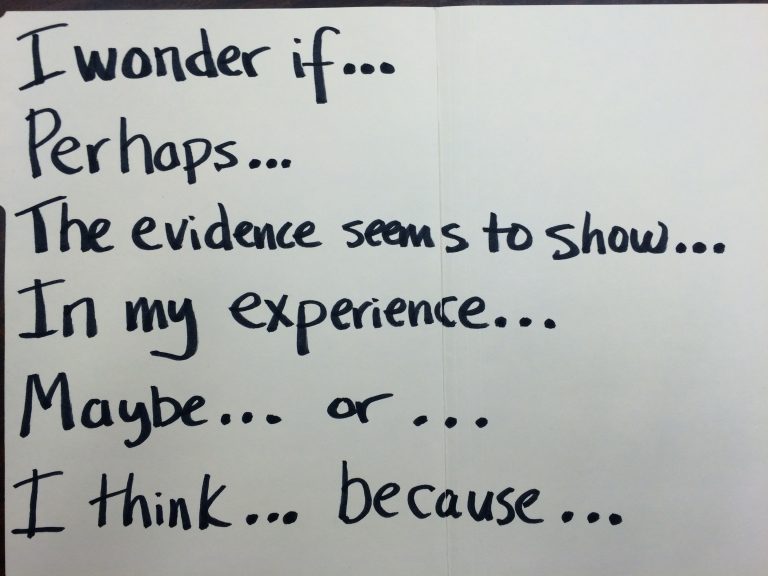 I wonder if...
Perhaps...
The evidence seems to show...
In my experience...
Maybe... or ...
I think... because...